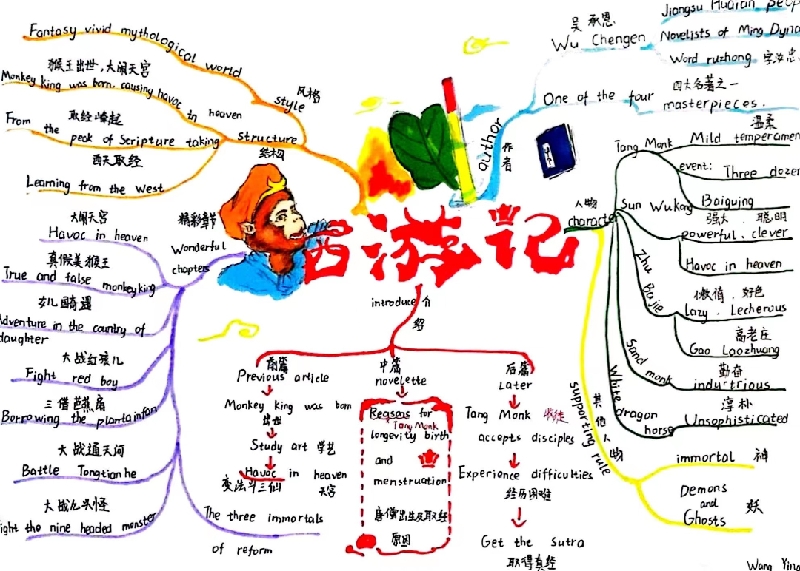 Fantasy vivid mythological world
style
风格
猴王出世,大闹天宫
Monkey king was born, causing havoc in heaven
取经崛起
From the peak of Scripture taking
Structure
结构
西天取经
Learning from the West
吴承恩
Wu Chengen
Jiangsu Huaian
Novelists of Ming
Word ruzhong
四大名著之一
One of the four
masterpieces.
author
作者
西游记
精彩章节
Wonderful
chapters
大闹天宫
Havoc in heaven
真假美猴王
True and false monkey king
女儿国奇遇
Adventure in the country of
daughter
大战红孩儿
Fight red boy
三借芭蕉扇
Borrowing the plantain fan
大战通天河
Battle Tongtianhe
大战九头怪
the nine headed monster
变法斗三仙
The three immortals
of reform
introduce 介
绍
前篇
Previous article
Monkey king was born
出世
Study art 学艺
Havoc in heaven
天宫
中篇
novelette
Reasons for
Tang Monk
longevity birth
and
menstruation
唐僧出生及取经
原因
后篇
Later
Tang Monk 收徒
accepts disciples
Experience difficulties
经历困难
Get the Sutra
取得真经
人物
character
温柔
Tang Monk Mild
event: Three
Sun Wukong
Baigujing
强大、聪明
powerful、clever
Havoc in heaven
Zhu Bajie
懒惰、好色
Lazy、Lecherous
高老庄
Gao Laozhuang
Sand monk
勤奋
industrious
White dragon
horse
淳朴
Unsophisticated
其他人物
supporting rule
immortal 神
Demons
and
Ghosts
妖
Wang